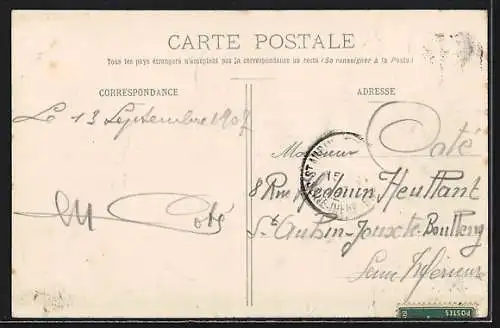 CARTE POSTALE
Tous les pays étrangers n'acceptent pas la correspondance au recto (Se renseigner à la Poste)
CORRESPONDANCE
ADRESSE
Le 13 Septembre 1907
Coté
Monsieur
8 Rue Hédouin Heuttant
St Aubin-Jouxte-Boulleng
Seine Inférieure
Coté
POSTES